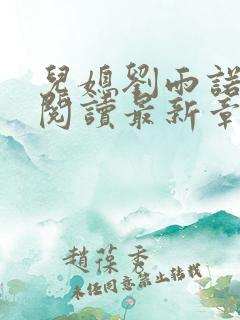 兒媳劉雨諾
閱讀最新章
趙葆秀
未任同意禁止轉載